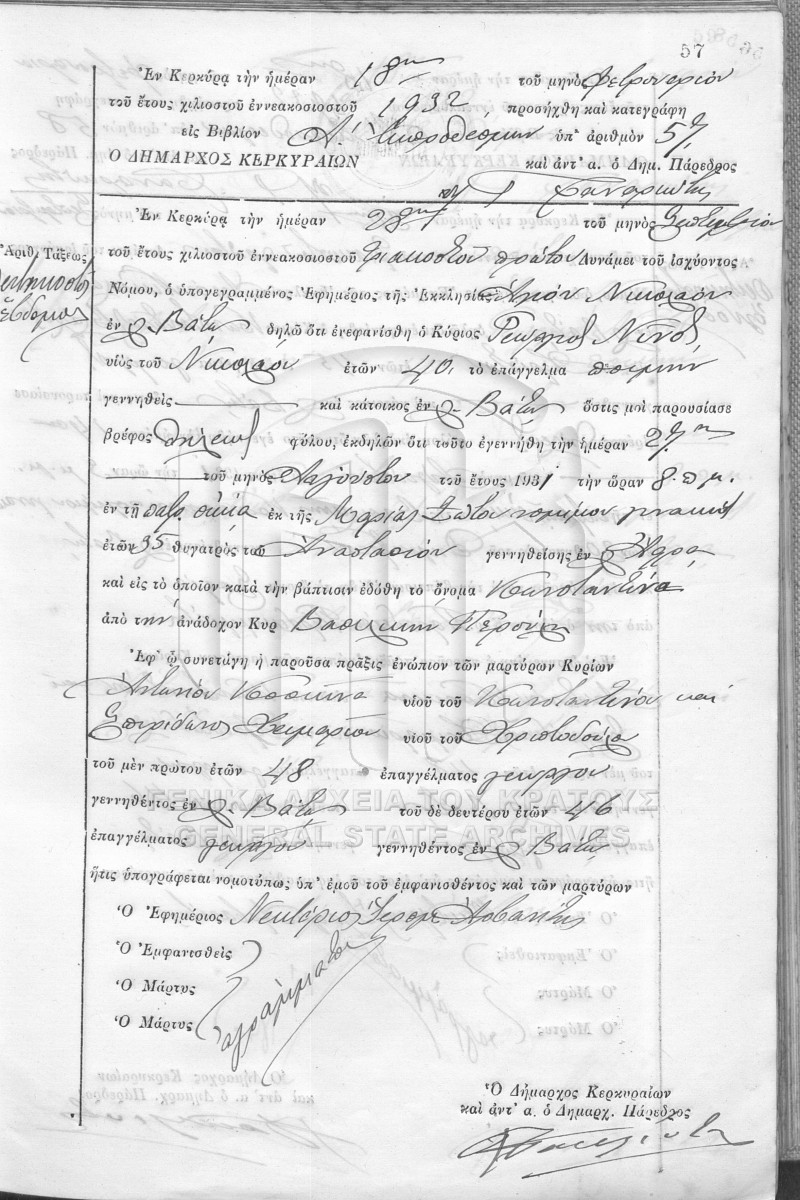 57
Ἐν Κερκύρᾳ τὴν ἡμέραν 18ην τοῦ μηνὸς Φεβρουαρίου
τοῦ ἔτους χιλιοστοῦ ἐννεακοσιοστοῦ 1932 προσήχθη καὶ κατεγράφη
εἰς Βιβλίον Α. Ἐκπροθέσμων ὑπ' ἀριθμὸν 57
Ο ΔΗΜΑΡΧΟΣ ΚΕΡΚΥΡΑΙΩΝ καὶ ἀντ' α. ὁ Δημ. Πάρεδρος
Ἐν Κερκύρᾳ τὴν ἡμέραν 28ην τοῦ μηνὸς Σεπτεμβρίου
Ἀριθ. Τάξεως
πεντηκοστὸς
ἕβδομος
τοῦ ἔτους χιλιοστοῦ ἐννεακοσιοστοῦ τριακοστοῦ πρώτου Δυνάμει τοῦ ἰσχύοντος
Νόμου, ὁ ὑπογεγραμμένος Ἐφημέριος τῆς Ἐκκλησίας Ἁγίου Νικολάου
ἐν χ. Βάτῳ δηλῶ ὅτι ἐνεφανίσθη ὁ Κύριος Γεώργιος Νῖνος
υἱὸς τοῦ Νικολάου ἐτῶν 40 τὸ ἐπάγγελμα ποιμὴν
γεννηθεὶς καὶ κάτοικος ἐν χ. Βάτῳ ὅστις μοὶ παρουσίασε
βρέφος θήλεως φύλου, ἐκδηλῶν ὅτι τοῦτο ἐγεννήθη τὴν ἡμέραν 27ην
τοῦ μηνὸς Αὐγούστου τοῦ ἔτους 1931 τὴν ὥραν 8 π.μ.
ἐν τῇ πατρ. οἰκίᾳ ἐκ τῆς Μαρίας νομίμου γυναικὸς
ἐτῶν 35 θυγατρὸς τοῦ Ἀναστασίου γεννηθείσης ἐν
καὶ εἰς τὸ ὁποῖον κατὰ τὴν βάπτισιν ἐδόθη τὸ ὄνομα Κωνσταντίνα
ἀπὸ τὴν ἀνάδοχον Κυρ Βασιλικὴν
Ἐφ' ᾧ συνετάγη ἡ παροῦσα πρᾶξις ἐνώπιον τῶν μαρτύρων Κυρίων
Ἀντωνίου Κοσκινᾶ υἱοῦ τοῦ Κωνσταντίνου καὶ
Σπυρίδωνος Χειμαριοῦ υἱοῦ τοῦ Χριστοδούλου
τοῦ μὲν πρώτου ἐτῶν 48 ἐπαγγέλματος γεωργοῦ
γεννηθέντος ἐν χ. Βάτῳ τοῦ δὲ δευτέρου ἐτῶν 46
ΓΕΝΙΚΑ ΑΡΧΕΙΑ ΤΟΥ ΚΡΑΤΟΥΣ
GENERAL STATE ARCHIVES
ἐπαγγέλματος γεωργοῦ γεννηθέντος ἐν χ. Βάτῳ
ἥτις ὑπογράφεται νομοτύπως ὑπ' ἐμοῦ τοῦ ἐμφανισθέντος καὶ τῶν μαρτύρων
Ὁ Ἐφημέριος Νεκτάριος Ἱερεὺς Ἀρβανίτης
Ὁ Ἐμφανισθεὶς
Ὁ Μάρτυς
Ὁ Μάρτυς
ἀγράμματοι
Ὁ Δήμαρχος Κερκυραίων
καὶ ἀντ' α. ὁ Δημαρχ. Πάρεδρος